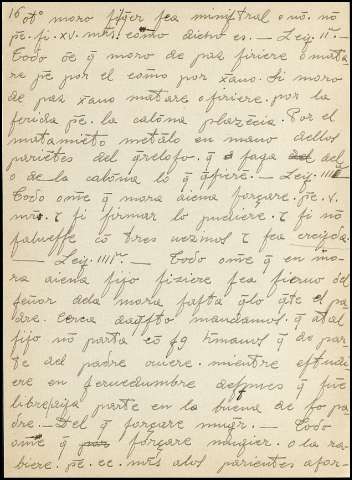 16 otº moro fijer sea ministral o nō. nō
pē. fi. xv. mrs̄. como dicho es. — Ley. IIª. —
Todo õe q̄ moro de paz firiere o mata
re pē por el como por x̄ano. Si moro
de paz x̄ano matare o firiere. por la
ferida pē. la calōna plazēcia. Por el
matamiēto metālo en mano dellos
pariētes del q̄relofo. q̄ faga del
o de la calōna lo q̄ q̄fierē. — Ley. IIIª
Todo om̄e q̄ mora aiena forçare. pē. x.
mrs̄. τ si firmar lo pudiere. τ si nō
falueffe cō tres uezinos τ fea creydo.
— Ley. IIIIª. — Todo om̄e q̄ en mo-
ra aiena fijo fiziere fea fieruo del
feñor dela mora fafta q̄lo q̄te el pa
dre. Cerca daq̄fto mandamos. q̄ atal
fijo nō parta cō fꝰ h̄manos q̄ de par
te del padre ouiere. mientre eftudi
ere en feruedumbre defpues q̄ fuē
libre, aya parte en la buena de fo pa
dre. — Del q̄ forçare mugr̄. — Todo
om̄e q̄ forçare mugier. o la ra-
biere. pē. cc. mrs̄ alos parientes afor-